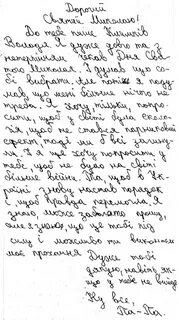 Дорогий
Святий Миколаю!
До тебе пише Кишинів
Володя. Я дуже довго та з
нетерпінням чекав Дня Свя-
того Миколая. Я думав що со-
бі вибрати, але потім я поду-
мав, що мені більше нічого не
треба. Я хочу тільки попро-
сити, щоб у світі була еколо-
гія, щоб не стався парниковий
ефект, тоді ми б всі загину-
ли. І я ще хочу попросити у
тебе, щоб не було на світі
більше війни. Та щоб в Ук-
раїні знову настав порядок
і щоб правда перемогла. Я
знаю, може забагато прошу,
але я знаю, що це тобі під
силу і можливо ти виконаєш
моє прохання. Дуже тобі
дякую, навіть як-
що у тебе не вийде
Ну все,
Па-Па.